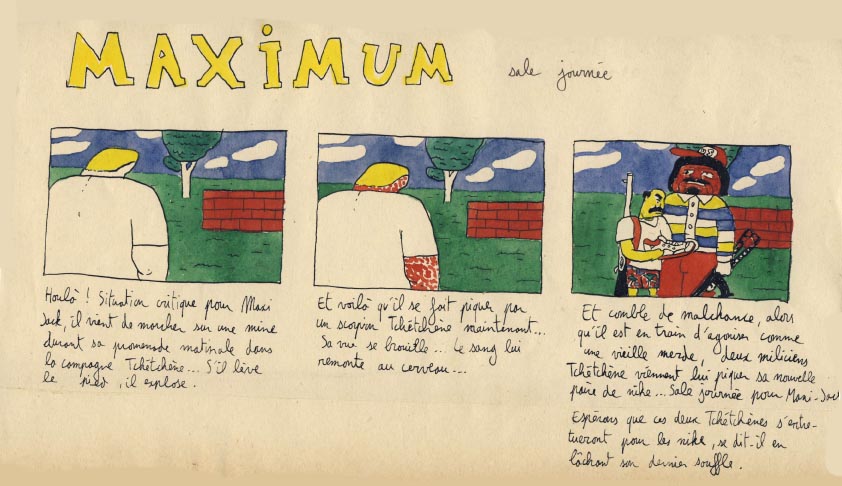 MAXIMUM
sale journée
Houlà ! Situation critique pour Maxi
Jack, il vient de marcher sur une mine
durant sa promenade matinale dans
la campagne Tchétchène... S'il lève
le pied, il explose.
Et voilà qu'il se fait piquer par
un scorpion Tchétchène maintenant...
Sa vue se brouille... Le sang lui
remonte au cerveau...
Et comble de malchance, alors
qu'il est en train d'agoniser comme
une vieille merde, deux miliciens
Tchétchène viennent lui piquer sa nouvelle
paire de nike... Sale journée pour Maxi-Jack
Espérons que ces deux Tchétchènes s'entre-
tueront pour les nike, se dit-il en
lâchant son dernier souffle.